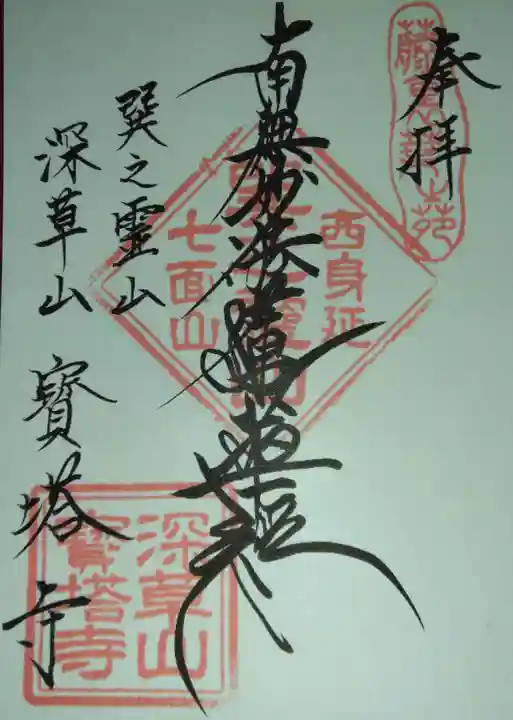 奉拝
南無妙法蓮華経
巽之靈山
深草山
寳塔寺
西身延
七面山
深草山
寳塔寺